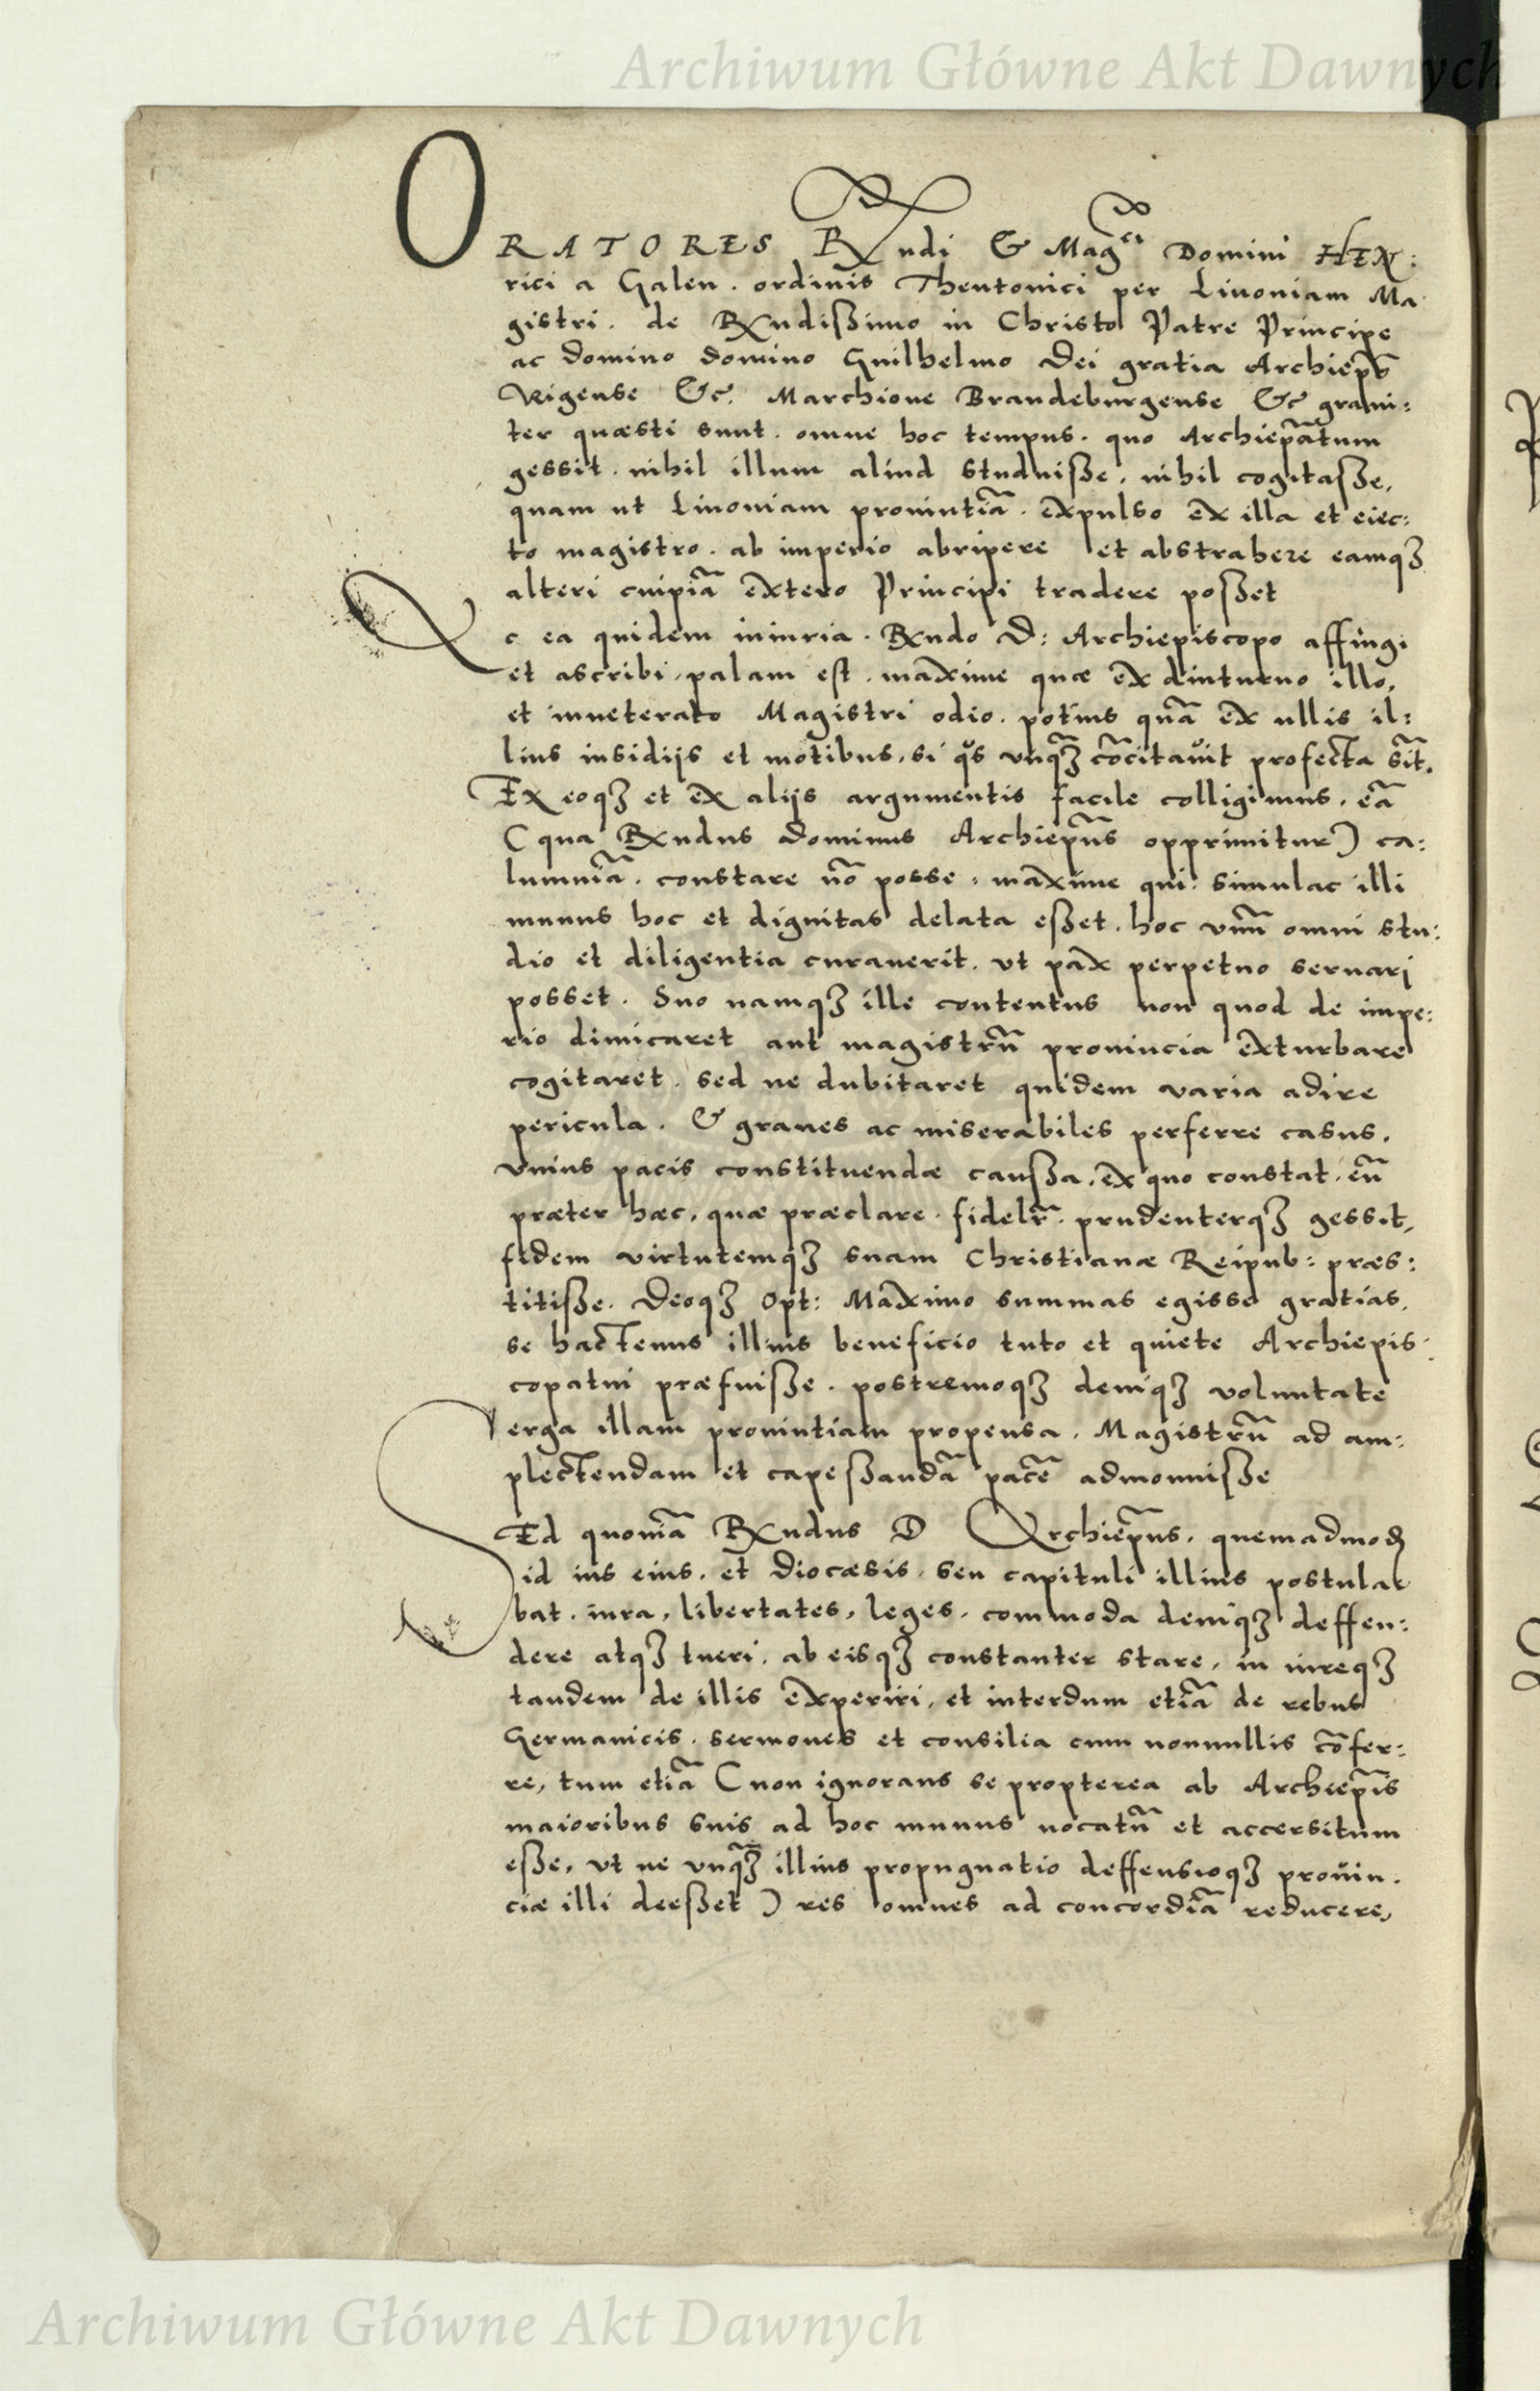 Archiwum Główne Akt Dawnych
ORATORES Rxndi & Mag^ci Domini HEN:
rici a Galen . ordinis Theutonici per Liuoniam Ma
gistri . de Rxndißimo in Christo Patre Principe
ac domino domino Guilhelmo Dei gratia Archiep̃o
Rigense &c. Marchione Brandeburgense &c graui:
ter quæsti sunt . omne hoc tempus . quo Archiep̃atum
gessit . nihil illum aliud studuiße , nihil cogitaße,
quam ut Liuoniam prouintiã . expulso ex illa et eiec:
to magistro . ab imperio abripere et abstrahere eamqꝫ
alteri cuipiã extero Principi tradere poßet
Ac ea quidem iniuria . Rxndo D: Archiepiscopo affingi
et ascribi , palam est . maxime quæ ex diuturno illo,
et inueterato Magistri odio . potius quã ex ullis il:
lius insidijs et motibus , si q̊s vnqꝫ cõcitauit profecta sĩt.
Ex eoqꝫ et ex alijs argumentis facile colligimus , eã
( qua Rxndus dominus Archiep̃us opprimitur ) ca:
lumniã . constare nõ posse , maxime qui . simulac illi
munus hoc et dignitas delata eßet . hoc vnũ omni stu:
dio et diligentia curauerit . ut pax perpetuo seruari
posset . Suo namqꝫ ille contentus non quod de impe:
rio dimicaret aut magistrũ prouincia exturbare
cogitaret . sed ne dubitaret quidem varia adire
pericula . & graues ac miserabiles perferre casus ,
vnius pacis constituendæ caußa , ex quo constat , eũ
præter hæc , quæ præclare . fidelr̃ . prudenterqꝫ gessit,
fidem virtutemqꝫ suam Christianæ Reipub: præs:
titiße . Deoqꝫ Opt: Maximo summas egisse gratias,
se hactenus illius beneficio tuto et quiete Archiepis
copatui præfuiße . postremoqꝫ deniqꝫ voluntate
erga illam prouintiam propensa , Magistrũ ad am:
plectendam et capeßandã pacẽ admonuiße
SEd quoniã Rxndus D Archiep̃us , quemadmodũ
id ius eius . et diocæsis . seu capituli illius postula
bat . iura , libertates , leges , commoda deniqꝫ deffen:
dere atqꝫ tueri , ab eisqꝫ constanter stare , in iureqꝫ
tandem de illis experiri , et interdum etiã de rebus
Germanicis . sermones et consilia cum nonnullis cõfer:
re, tum etiã ( non ignorans se propterea ab Archiep̃is
maioribus suis ad hoc munus uocatũ et accersitum
eße , ut ne vnqꝫ illius propugnatio deffensioqꝫ prouin
ciæ illi deeßet ) res omnes ad concordiã reducere,
Archiwum Główne Akt Dawnych